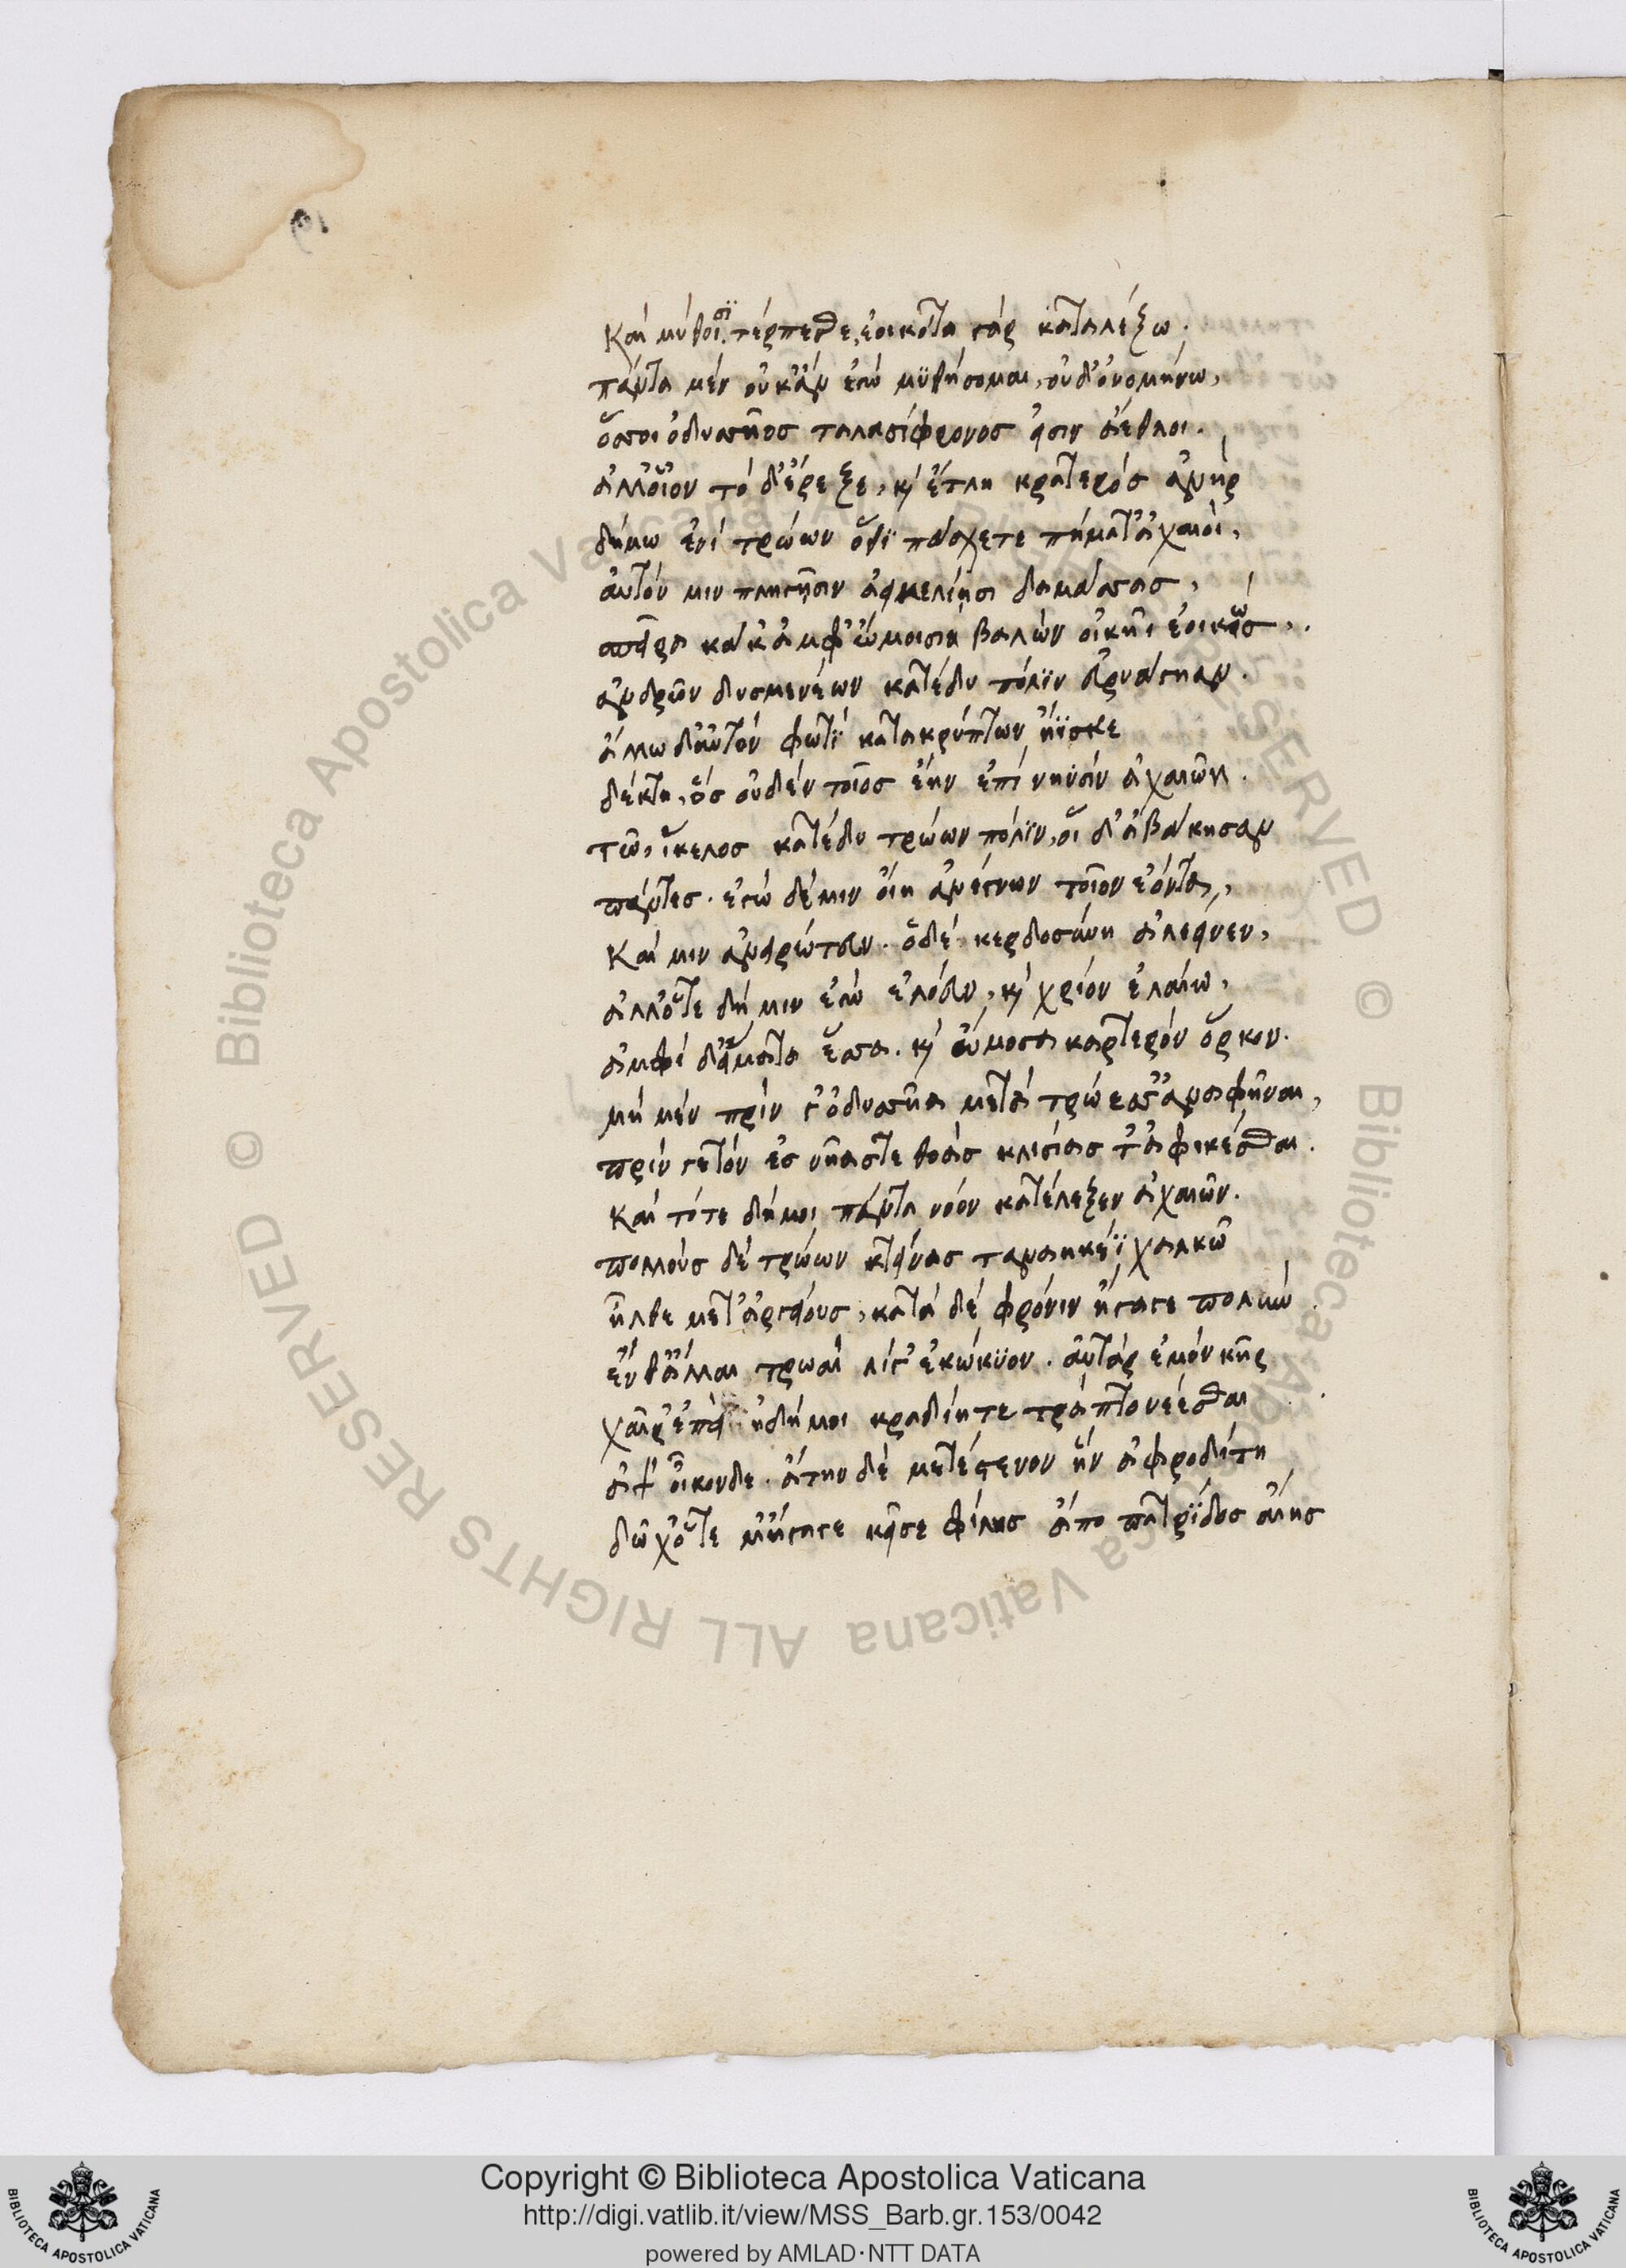 Καὶ μύθοισϊ τέρπεσθε, ἐοικότα γάρ καταλέξω.
πάντα μέν οὐκ ἄν ἐγώ μϋθήσομαι, οὐδ' ὀνομήνω,
ὅσσοι ὀδυσσῆος ταλασίφρονος εἰσιν ἄεθλοι.
ἀλλ' οἷον τό δ' ἔρεξε, κ' ἔτλη κρατερός ἀνήρ
δήμω ἐνί τρώων ὅθϊ πάσχετε πήματ' ἀχαιοί,
αὐτόν μιν πληγῆσιν ἀεικελίησι δαμάσσας,
σπεῖρα κάκ' ἀμφ' ὤμοισι βαλών οἰκῆι ἐοικώς,
ἀνδρῶν δυσμενέων κατέδυ πόλϊν εὐρυάγυιαν.
ἄλλω δ' αὐτόν φωτϊ κατακρύπτων ἤϊσκε
δέκτη, ὅς οὐδέν τοῖος ἔην ἐπί νηϋσίν ἀχαιῶν.
τῶ, ἴκελος κατέδυ τρώων πόλϊν, οἱ δ' ἀβάκησαν
πάντες. ἐγώ δέ μιν οἴη ἀνέγνων τοῖον ἐόντα,
Καί μιν ἀνειρώτευν. ὁ δέ κερδοσύνη ἀλέεινεν,
ἀλλ' ὅτε δή μιν ἐγώ ἐλόευν, κ' χρῖον ἐλαίω,
ἀμφί δ' εἵματα ἕσσα. κ' ὤμοσα καρτερόν ὅρκον.
μή μέν πρίν γ' ὀδυσσῆα μετά τρώεσσ' ἀναφῆναι,
πρίν γε τόν ἐς νῆαστε θοάς κλισίας τ' ἀφικέσθαι.
Καί τότε δή μοι πάντα νόον κατέλεξεν ἀχαιῶν.
πολλούς δέ τρώων κτείνας ταναηκέϊ χαλκῶ
ἦλθε μετ' ἀργείους, κατά δέ φρόνιν ἤγαγε πολλήν
ἔνθ' ἄλλαι τρωαί λίγ' ἐκώκϋον. αὐτάρ ἐμόν κῆρ
χαῖρ' ἐπεί ἤδή μοι κραδίη τέτραπτο νέεσθαι
ἄψ οἶκονδε. ἄτην δέ μετέστενον ἥν ἀφροδίτη
δῶχ' ὅτε μ' ἤγαγε κεῖσε φίλης ἄπο πατρϊδος αἴης
Copyright © Biblioteca Apostolica Vaticana
http://digi.vatlib.it/view/MSS_Barb.gr.153/0042
powered by AMLAD·NTT DATA